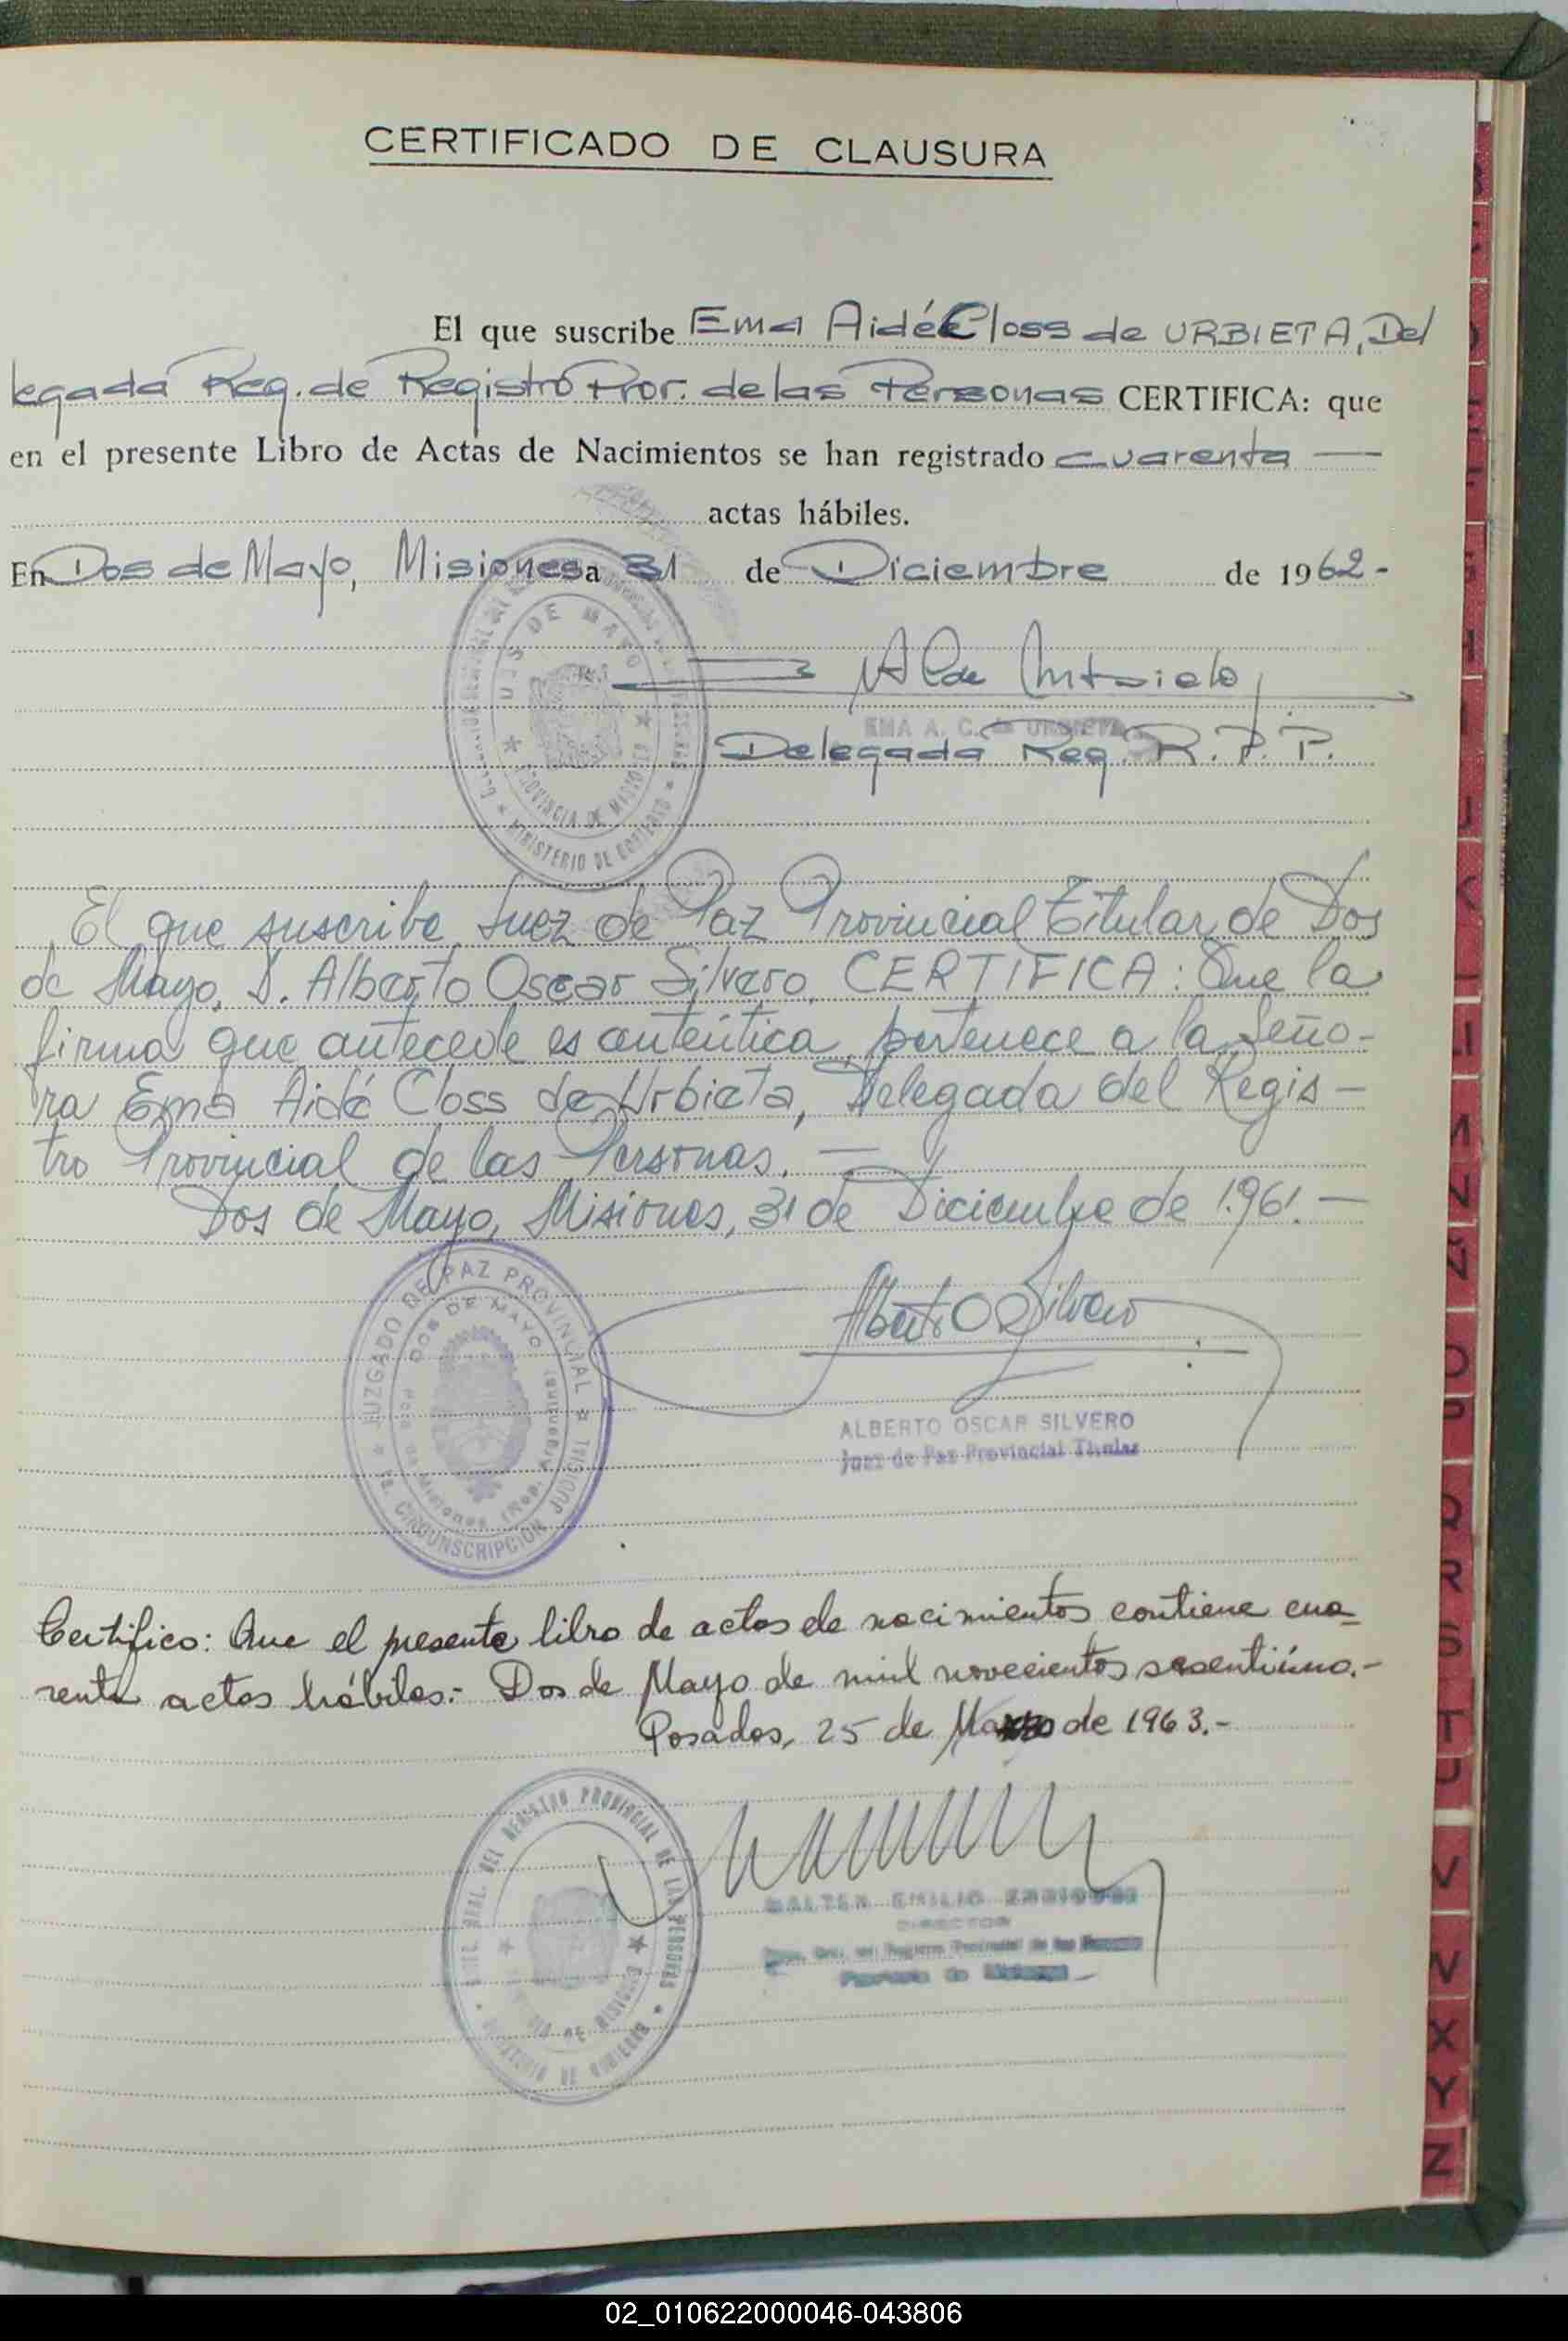 CERTIFICADO DE CLAUSURA
El que suscribe Ema Aidée Closs de URBIETA, Del
legada Reg. de Registro Pror. de las Personas CERTIFICA: que
en el presente Libro de Actas de Nacimientos se han registrado cuarenta —
actas hábiles.
En Dos de Mayo, Misiones a 31 de Diciembre de 1962.-
DOS DE MAYO
PROVINCIA DE MISIONES
MINISTERIO DE GOBIERNO
EMA A. C. de URBIETA
Delegada Reg. R. P. P.
El que suscribe, Juez de Paz Provincial Titular de Dos
de Mayo, D. Alberto Oscar Silvero, CERTIFICA: Que la
firma que antecede es auténtica, pertenece a la Seño-
ra Ema Aidé Closs de Urbieta, Delegada del Regis-
tro Provincial de las Personas. —
Dos de Mayo, Misiones, 31 de Diciembre de 1.961.—
JUZGADO DE PAZ PROVINCIAL
DOS DE MAYO
Pcia. de Misiones (Rep. Argentina)
CIRCUNSCRIPCION JUDICIAL
Alberto O Silvero
ALBERTO OSCAR SILVERO
Juez de Paz Provincial Titular
Certifico: Que el presente libro de actas de nacimientos contiene cua-
renta actas hábiles.- Dos de Mayo de mil novecientos sesentiúno.-
Posadas, 25 de Marzo de 1963.-
DIREC. GRAL. DEL REGISTRO PROVINCIAL DE LAS PERSONAS
PROVINCIA DE MISIONES
MINISTERIO DE GOBIERNO
WALTER EMILIO
DIRECTOR
Direc. Gral. del Registro Provincial de las Personas
Provincia de Misiones
J
K
L
M
N
Ñ
O
P
Q
R
S
T
U
V
W
X
Y
Z
02_010622000046-043806